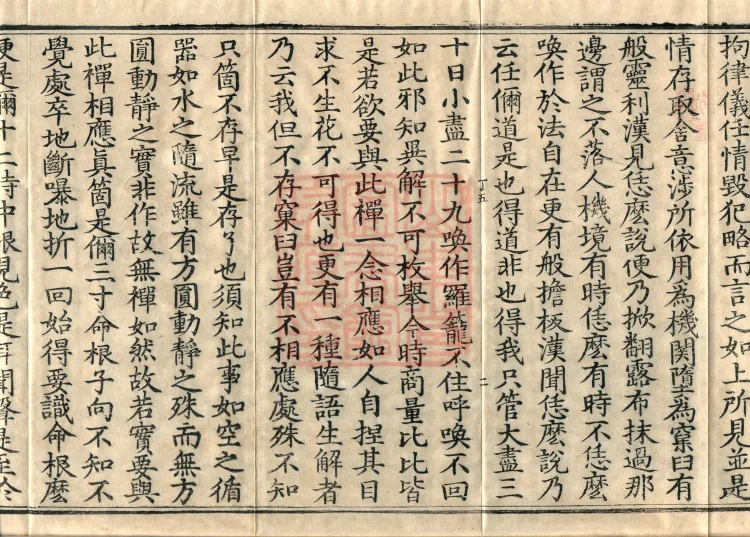 拘律儀任情毀犯略而言之如上所見並是
情存取舍意涉所依用為機関墮為窠臼有
般靈利漢見恁麼說便乃掀翻露布抹過那
邊謂之不落人機境有時恁麼有時不恁麼
喚作於法自在更有般擔板漢聞恁麼說乃
云任儞道是也得道非也得我只管大盡三
丁五
二
十日小盡二十九喚作羅籠不住呼喚不回
如此邪知異解不可枚舉今時商量比比皆
是若欲要與此禪一念相應如人自捏其目
求不生花不可得也更有一種隨語生解者
乃云我但不存窠臼豈有不相應處殊不知
只箇不存早是存了也須知此事如空之循
器如水之隨流雖有方圓動靜之殊而無方
圓動靜之實非作故無禪如然故若實要與
此禪相應真箇是儞三寸命根子向不知不
覺處卒地斷嚗地折一回始得要識命根麼
便是儞十二時中眼見色是耳聞聲是至於